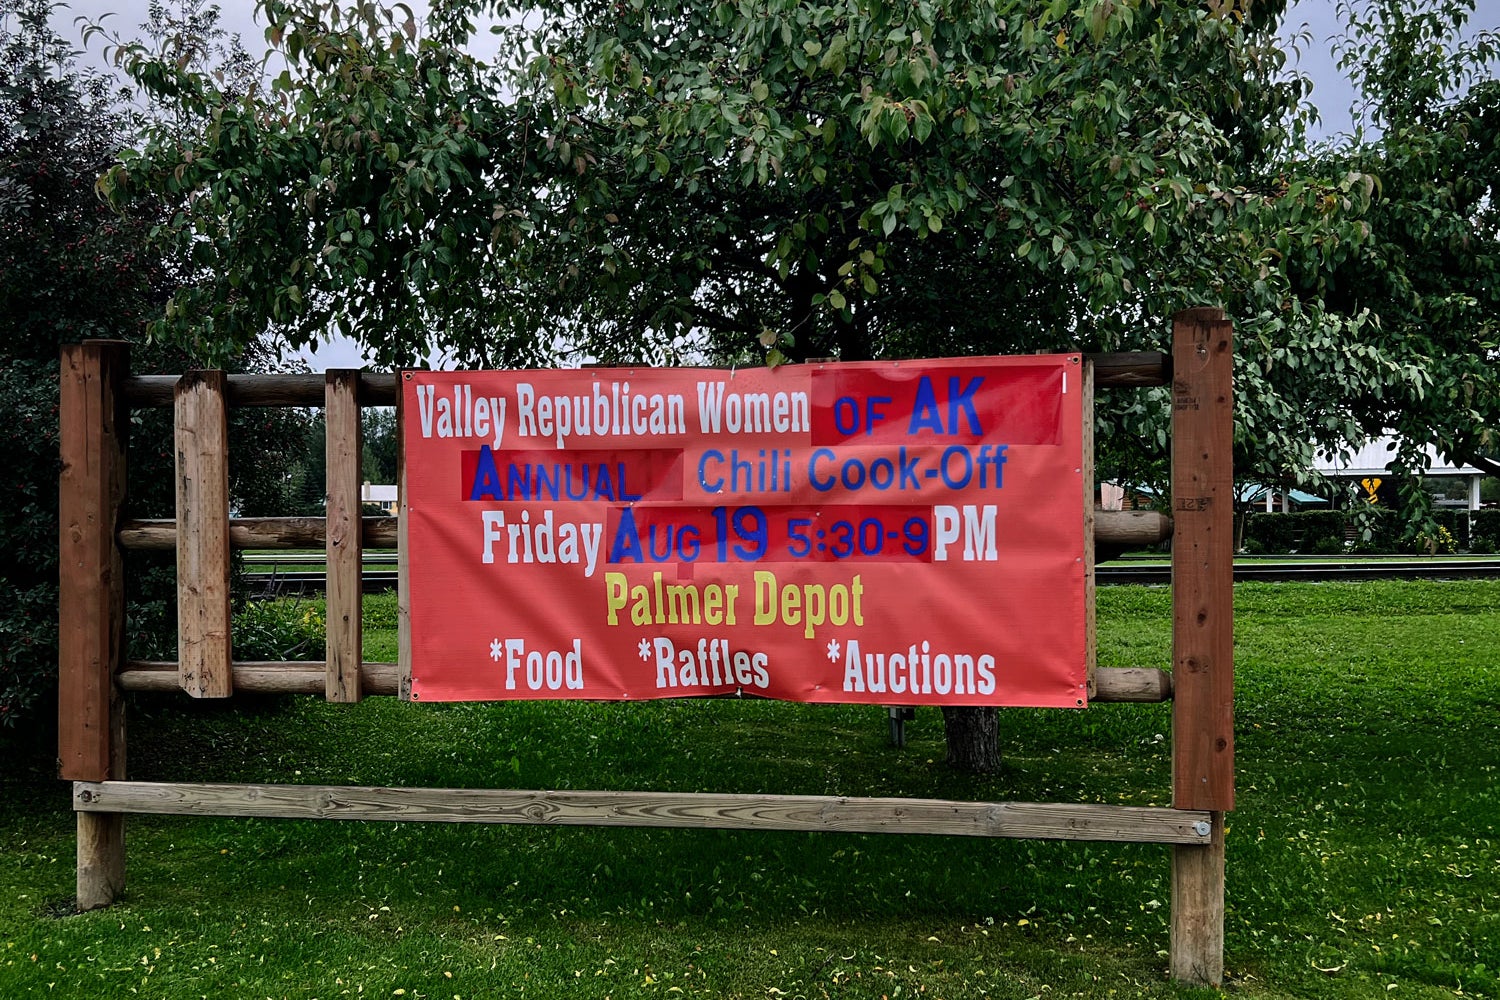 Valley Republican Women OF AK
ANNUAL Chili Cook-Off
Friday AUG 19 5:30-9 PM
Palmer Depot
*Food *Raffles *Auctions